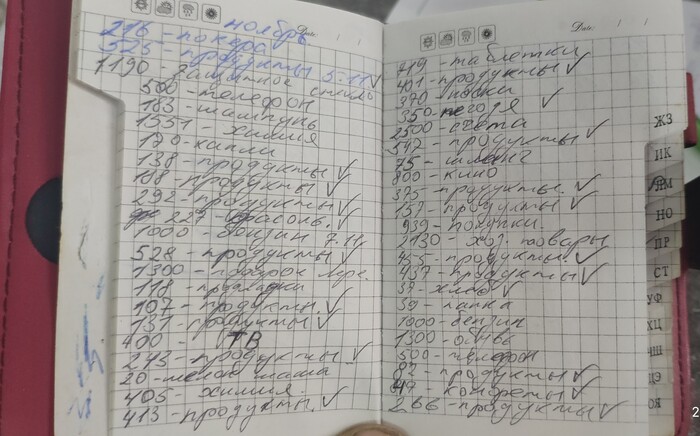 Date:
ноябрь
216 - покуро
525 - продукты
1190 - защитное стекло 5.11 √
500 - телефон
183 - шампунь
1551 - химия
120 - капли
138 - продукты √
108 - продукты √
292 - продукты √
227 - фасоль. √
1000 - бензин 7.11
528 - продукты √
1300 - подарок
118 - прокладки
107 - продукты. √
131 - продукты √
400 - ТВ
243 - продукты √
20 - мелоч мама
405 - химия
413 - продукты. √
Date:
719 - таблетки
401 - продукты √
370 - носки
350 - √
2500 - счета
542 - продукты √
75 - шланг
800 - кино
375 - продукты. √
137 - продукты √
939 - покупки.
2130 - хоз. товары
455 - продукты √
437 - продукты √
37 - хлеб √
39 - папка
1000 - бензин
1300 - обувь
500 - телефон
87 - продукты √
конфеты √
266 - продукты √
ЖЗ
ПК
ЛМ
НО
ПР
СТ
УФ
ХЦ
ЧШ
ЮЯ
2